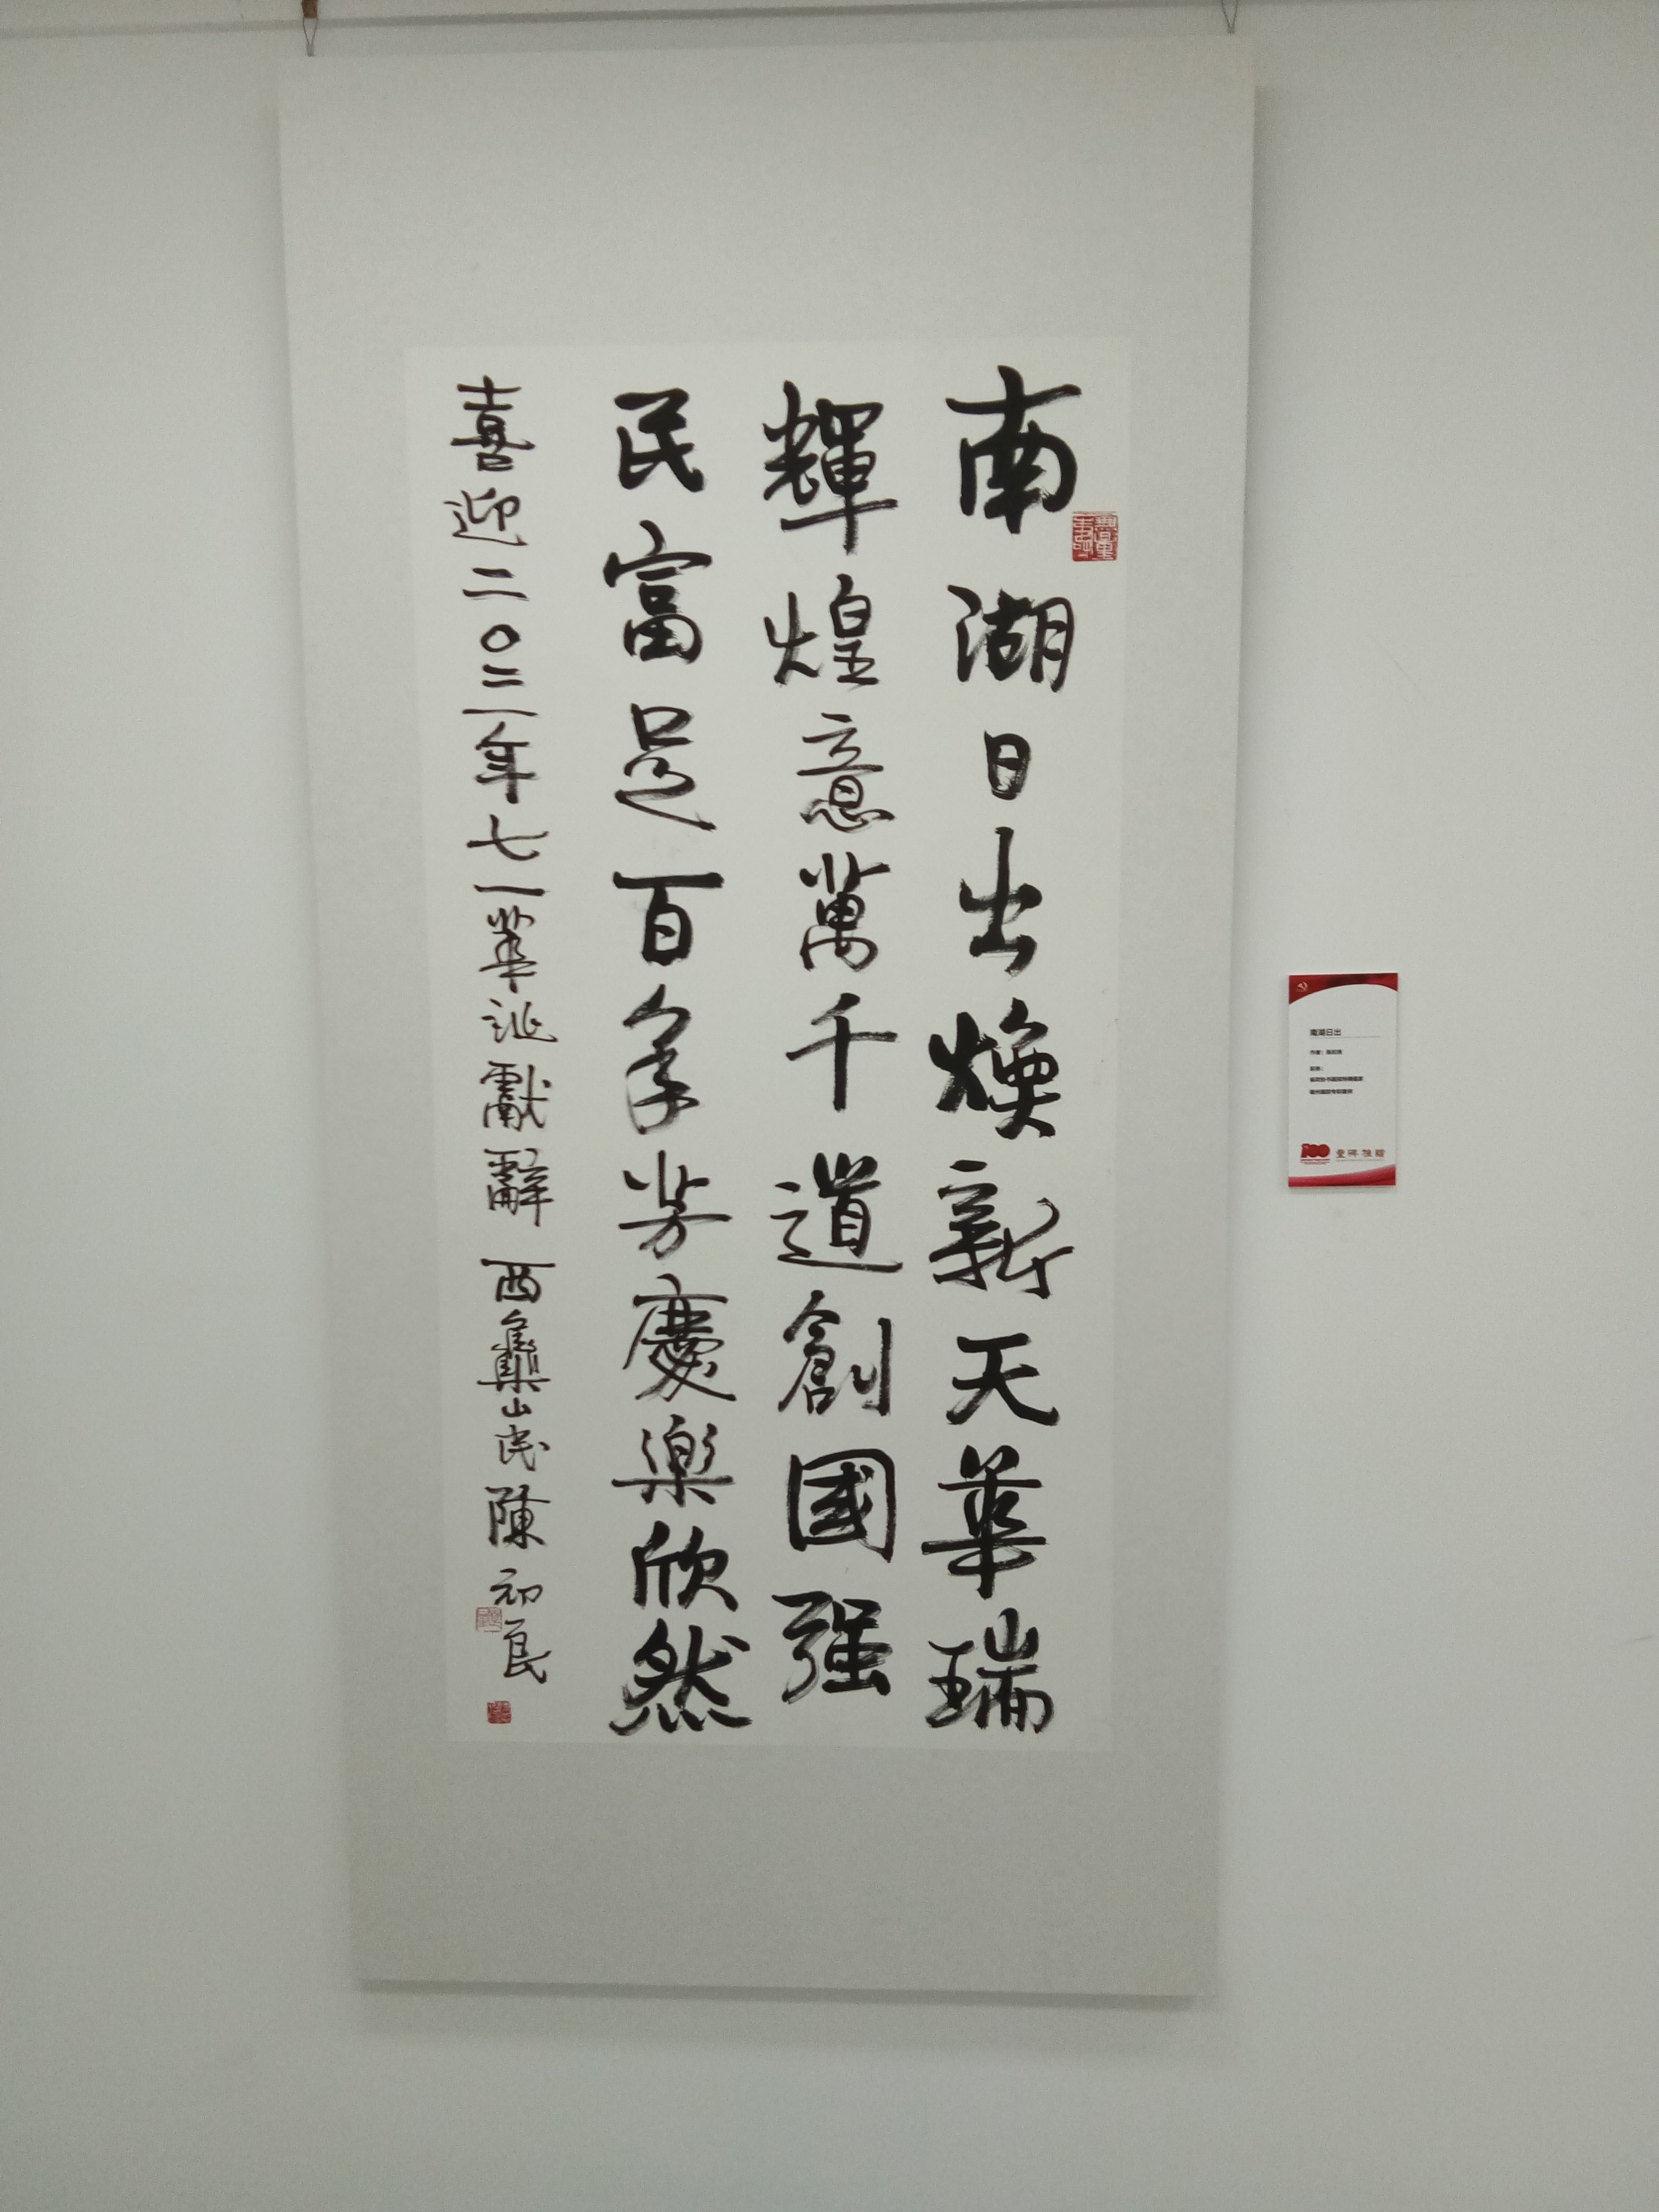 南湖日出煥新天華瑞
輝煌意萬千道創國强
民富足百年芳慶樂欣然
喜迎二〇二一年七一華誕獻辭 西彝山民陳初良
南湖日出
作者：
100